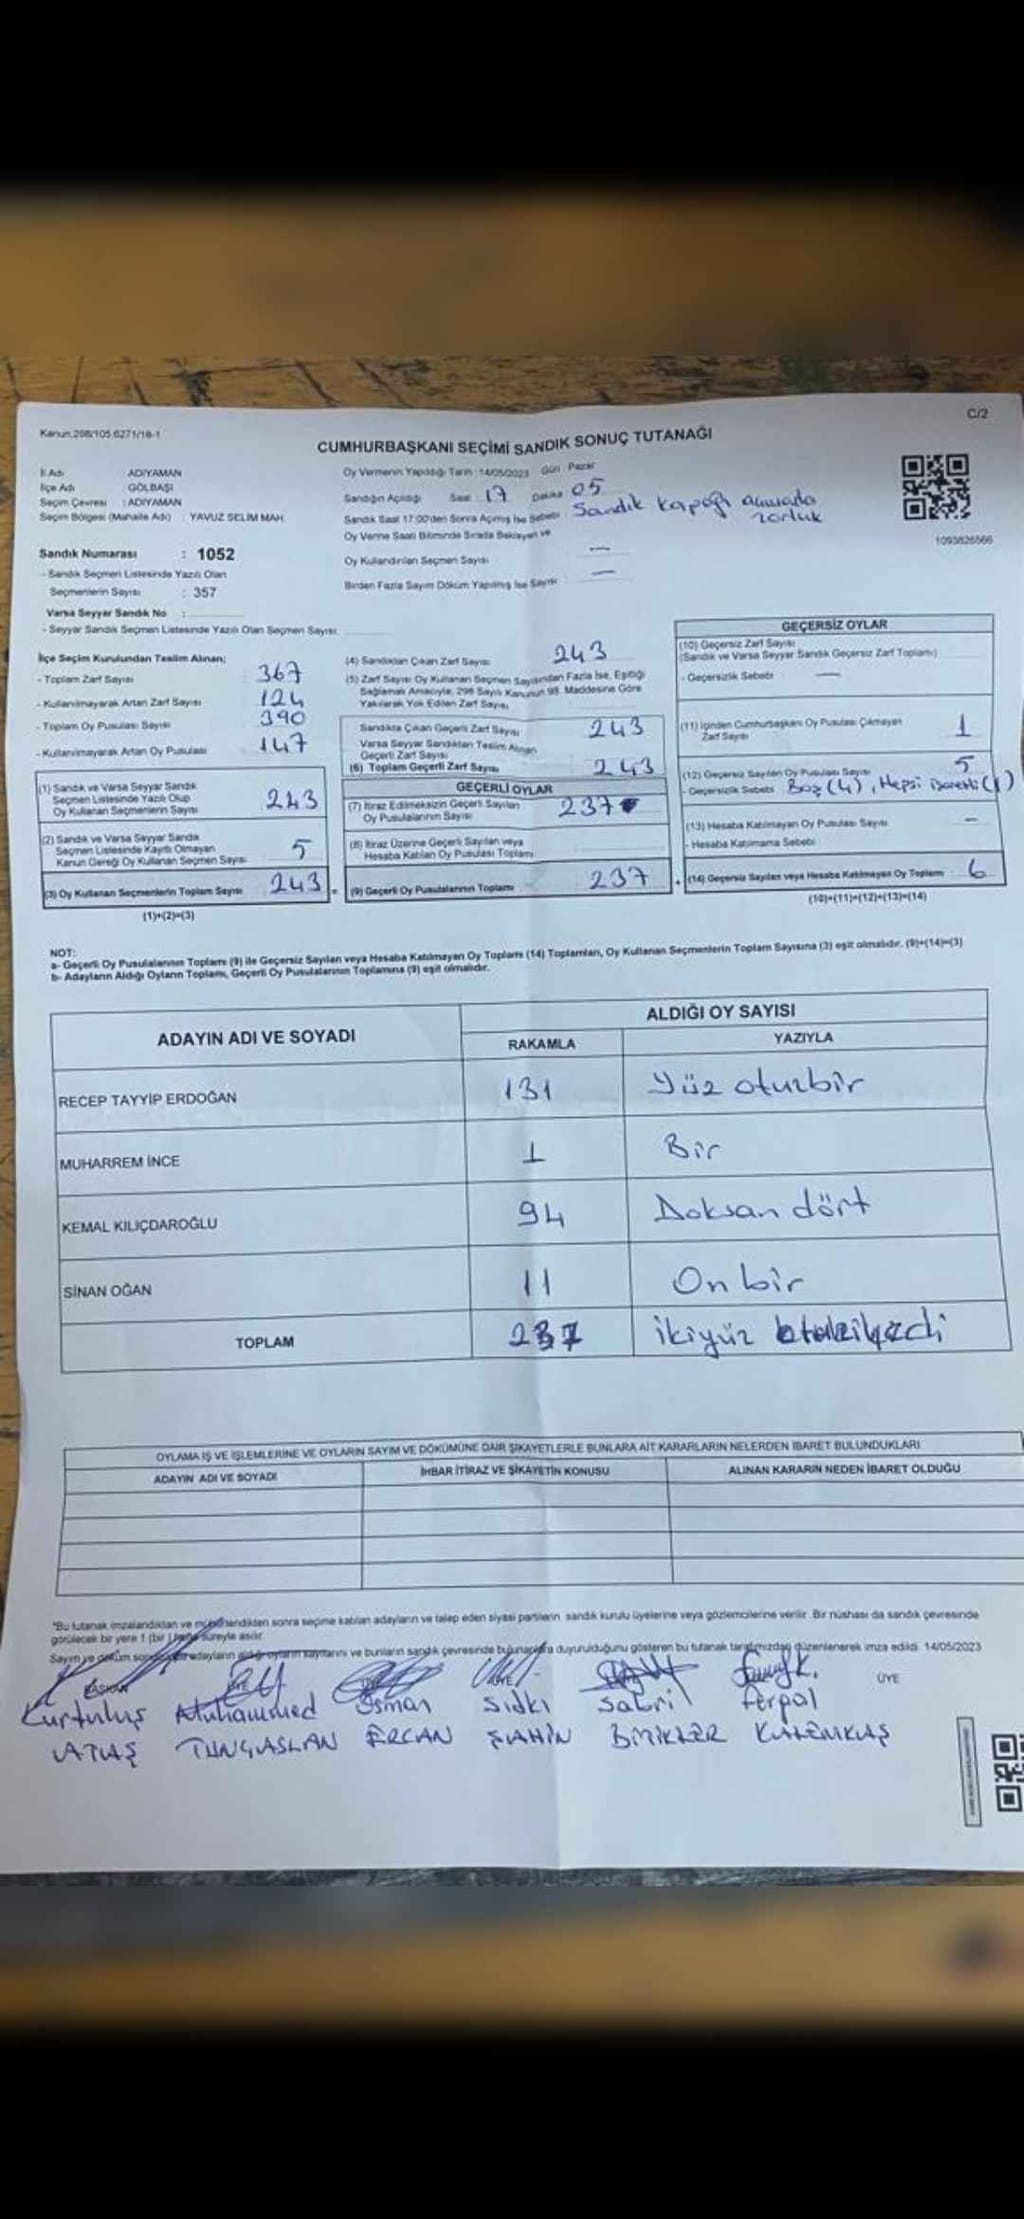 C/2
Kanun:298/105 6271/18-1
CUMHURBAŞKANI SEÇİMİ SANDIK SONUÇ TUTANAĞI
İl Adı ADIYAMAN
İlçe Adı GÖLBAŞI
Seçim Çevresi : ADIYAMAN
Seçim Bölgesi (Mahalle Adı) : YAVUZ SELİM MAH.
Oy Vermenin Yapıldığı Tarih : 14/05/2023 Gün : Pazar
Sandığın Açıldığı Saat : 17 Dakika 05
Sandık Saat 17:00'den Sonra Açılmış İse Sebebi Sandık kapağı açmada zorluk
Oy Verme Saati Bitiminde Sırada Bekleyen ve
Oy Kullandırılan Seçmen Sayısı —
Birden Fazla Sayım Döküm Yapılmış İse Sayısı —
1093826566
Sandık Numarası : 1052
- Sandık Seçmen Listesinde Yazılı Olan
Seçmenlerin Sayısı : 357
Varsa Seyyar Sandık No :
- Seyyar Sandık Seçmen Listesinde Yazılı Olan Seçmen Sayısı
İlçe Seçim Kurulundan Teslim Alınan;
- Toplam Zarf Sayısı 367
- Kullanılmayarak Artan Zarf Sayısı 124
- Toplam Oy Pusulası Sayısı 390
- Kullanılmayarak Artan Oy Pusulası 147
(1) Sandık ve Varsa Seyyar Sandık
Seçmen Listesinde Yazılı Olup
Oy Kullanan Seçmenlerin Sayısı 243
(2) Sandık ve Varsa Seyyar Sandık
Seçmen Listesinde Kayıtlı Olmayan
Kanun Gereği Oy Kullanan Seçmen Sayısı 5
(3) Oy Kullanan Seçmenlerin Toplam Sayısı 243
(1)+(2)=(3)
(4) Sandıktan Çıkan Zarf Sayısı 243
(5) Zarf Sayısı Oy Kullanan Seçmen Sayısından Fazla İse, Eşitliği
Sağlamak Amacıyla, 298 Sayılı Kanunun 98. Maddesine Göre
Yakılarak Yok Edilen Zarf Sayısı
Sandıkta Çıkan Geçerli Zarf Sayısı 243
Varsa Seyyar Sandıktan Teslim Alınan
Geçerli Zarf Sayısı
(6) Toplam Geçerli Zarf Sayısı 243
GEÇERLİ OYLAR
(7) İtiraz Edilmeksizin Geçerli Sayılan
Oy Pusulalarının Sayısı 237
(8) İtiraz Üzerine Geçerli Sayılan veya
Hesaba Katılan Oy Pusulası Toplamı
(9) Geçerli Oy Pusulalarının Toplamı 237
GEÇERSİZ OYLAR
(10) Geçersiz Zarf Sayısı
(Sandık ve Varsa Seyyar Sandık Geçersiz Zarf Toplamı)
- Geçersizlik Sebebi —
(11) İçinden Cumhurbaşkanı Oy Pusulası Çıkmayan
Zarf Sayısı 1
(12) Geçersiz Sayılan Oy Pusulası Sayısı 5
- Geçersizlik Sebebi Boş (4), Hepsi (1)
(13) Hesaba Katılmayan Oy Pusulası Sayısı —
- Hesaba Katılmama Sebebi
(14) Geçersiz Sayılan veya Hesaba Katılmayan Oy Toplamı 6
(10)+(11)+(12)+(13)=(14)
NOT:
a- Geçerli Oy Pusulalarının Toplamı (9) ile Geçersiz Sayılan veya Hesaba Katılmayan Oy Toplamı (14) Toplamları, Oy Kullanan Seçmenlerin Toplam Sayısına (3) eşit olmalıdır. (9)+(14)=(3)
b- Adayların Aldığı Oyların Toplamı, Geçerli Oy Pusulalarının Toplamına (9) eşit olmalıdır.
ADAYIN ADI VE SOYADI
ALDIĞI OY SAYISI
RAKAMLA YAZIYLA
RECEP TAYYİP ERDOĞAN 131 Yüz otuzbir
MUHARREM İNCE 1 Bir
KEMAL KILIÇDAROĞLU 94 Doksan dört
SİNAN OĞAN 11 On bir
TOPLAM 237 ikiyüz
OYLAMA İŞ VE İŞLEMLERİNE VE OYLARIN SAYIM VE DÖKÜMÜNE DAİR ŞİKAYETLERLE BUNLARA AİT KARARLARIN NELERDEN İBARET BULUNDUKLARI
ADAYIN ADI VE SOYADI İHBAR İTİRAZ VE ŞİKAYETİN KONUSU ALINAN KARARIN NEDEN İBARET OLDUĞU
"Bu tutanak imzalandıktan ve mühürlendikten sonra seçime katılan adayların ve talep eden siyasi partilerin sandık kurulu üyelerine veya gözlemcilerine verilir. Bir nüshası da sandık çevresinde
görülecek bir yere 1 (bir) hafta süreyle asılır.
Sayım ve döküm sonucu adayların aldığı oyların sayılarını ve bunların sandık çevresinde bulunanlara duyurulduğunu gösteren bu tutanak tarafımızdan düzenlenerek imza edildi. 14/05/2023
BAŞKAN ÜYE ÜYE ÜYE
Kurtuluş Muhammed Osman Sıdkı Sabri Ferpal
TUNÇASLAN ERCAN ŞAHİN